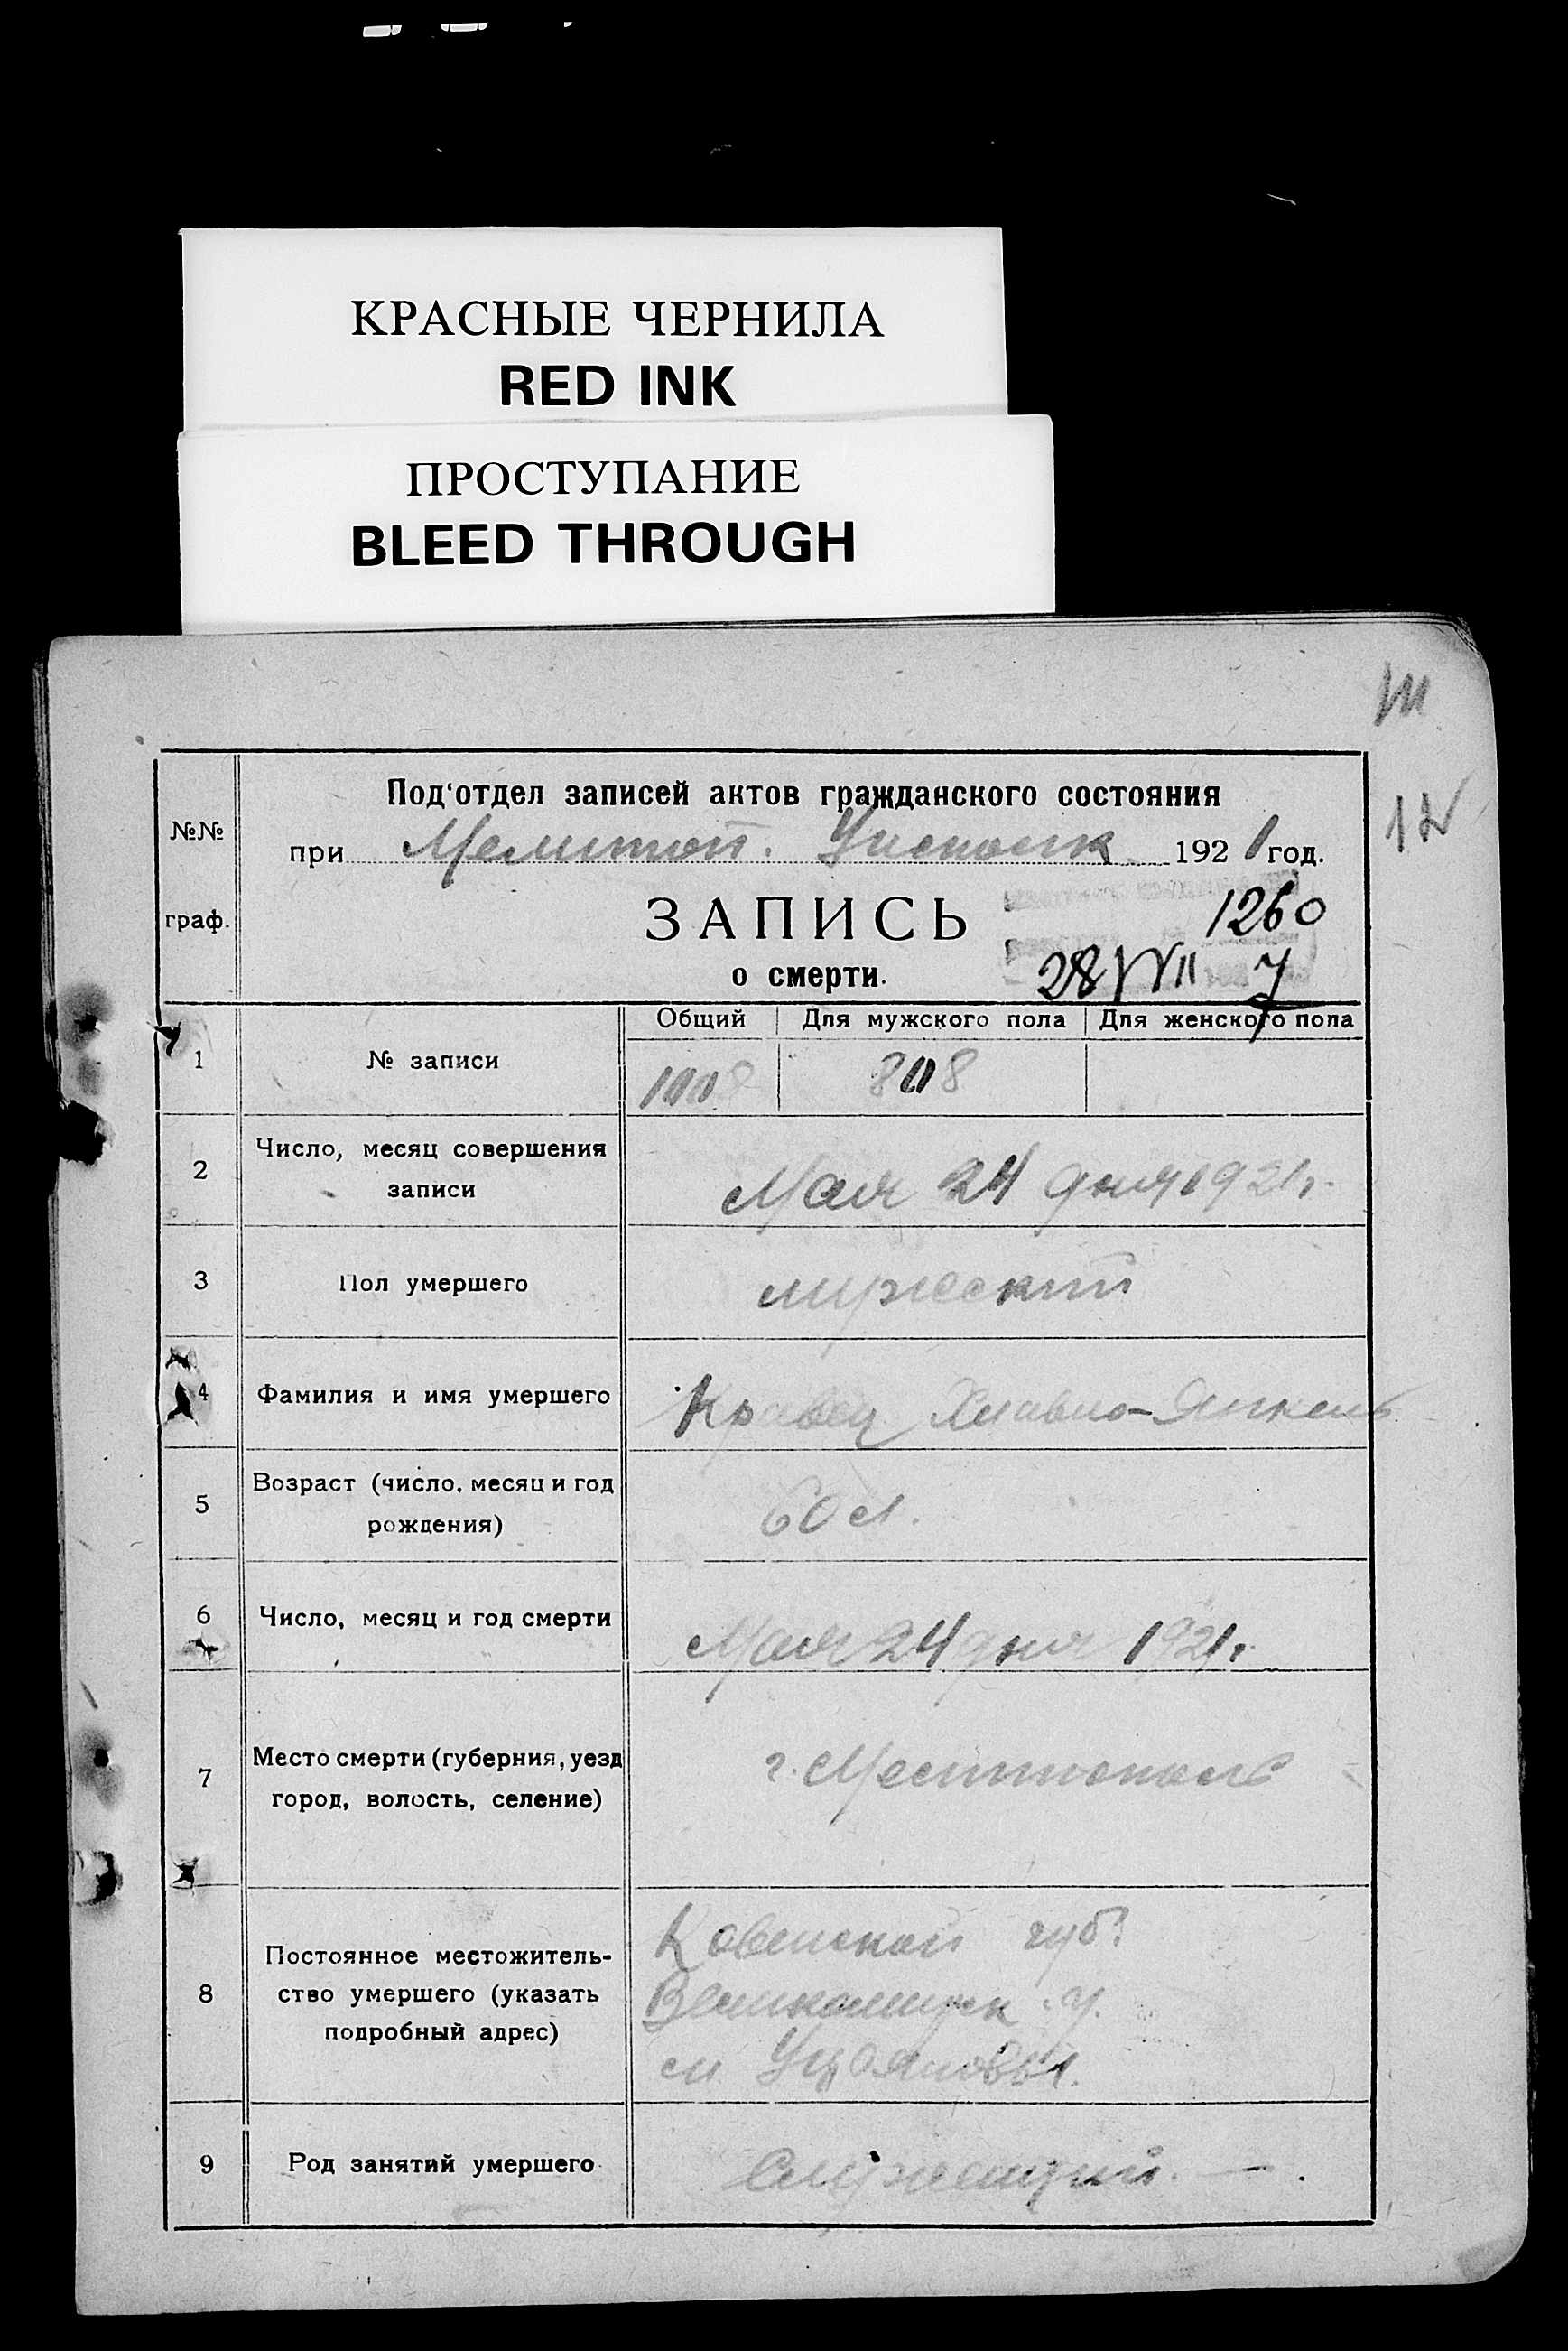 КРАСНЫЕ ЧЕРНИЛА
RED INK
ПРОСТУПАНИЕ
BLEED THROUGH
№№
граф.
Под'отдел записей актов гражданского состояния
при Мелитоп. 1921 год.
ЗАПИСЬ
1260
о смерти.
28
Общий Для мужского пола Для женского пола
1 № записи 808
2 Число, месяц совершения
записи
Мая 24 дня 1921 г.
3 Пол умершего мужеский
4 Фамилия и имя умершего Кравец -Янкель
5 Возраст (число, месяц и год
рождения)
60 л.
6 Число, месяц и год смерти Мая 24 дня 1921 г.
7 Место смерти (губерния, уезд
город, волость, селение)
г. Мелитополь
8 Постоянное местожитель-
ство умершего (указать
подробный адрес)
Ковенской губ.
у.
м.
9 Род занятий умершего Служащий. —.